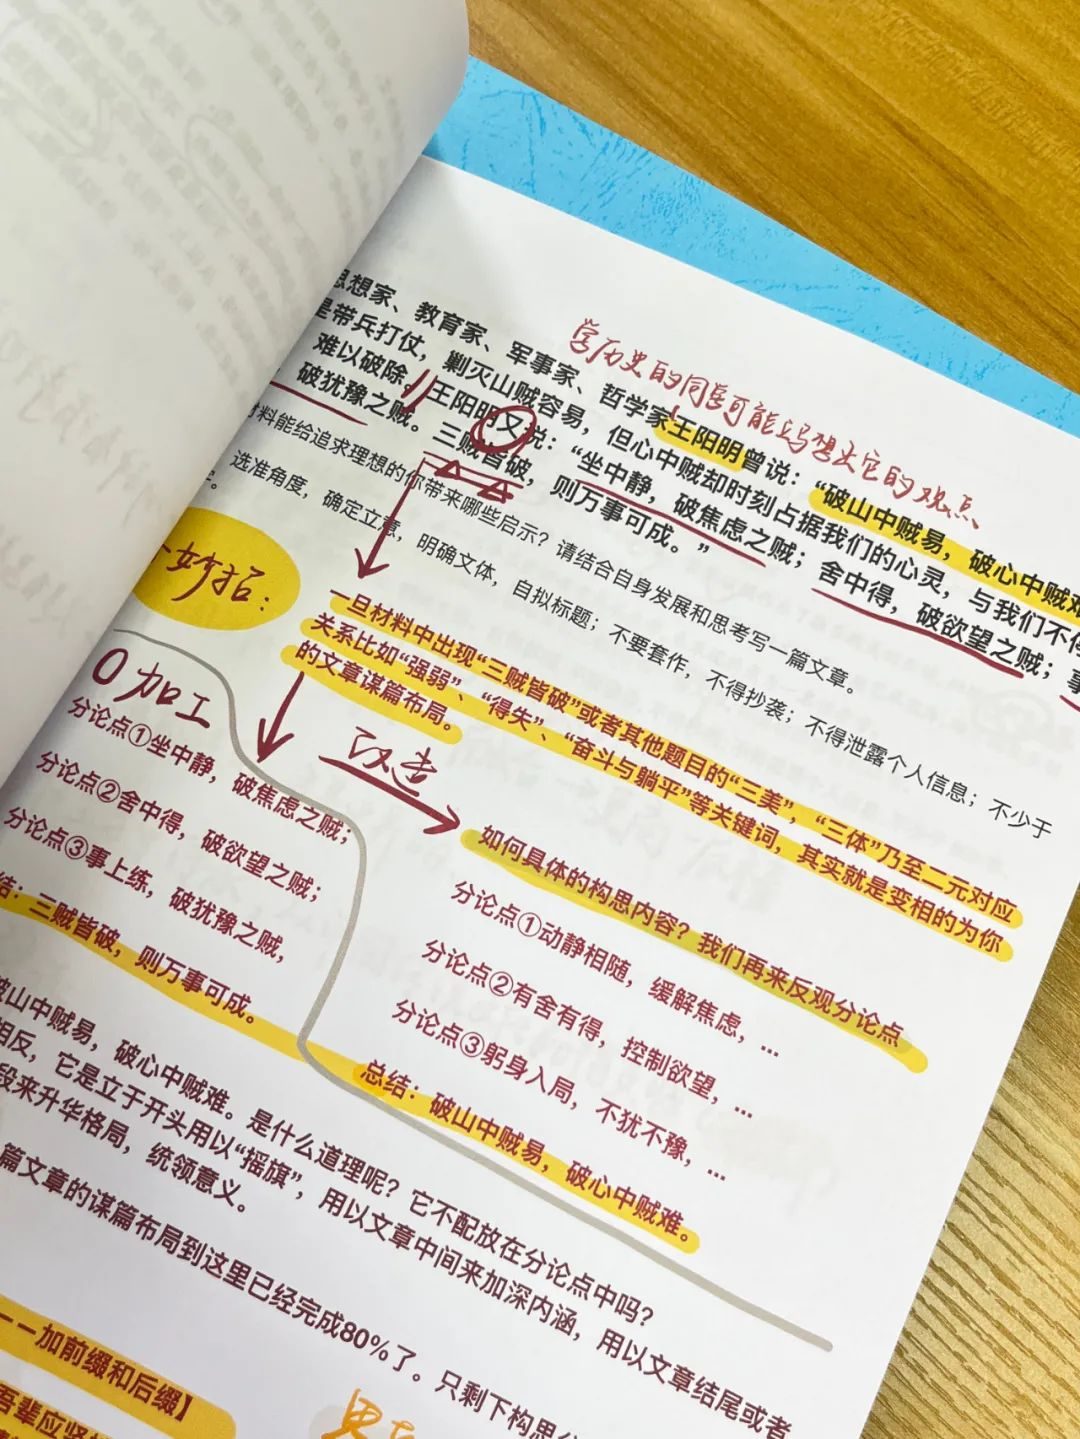 学历史的同学可能马上想出它的观点
思想家、教育家、军事家、哲学家王阳明曾说：“破山中贼易，破心中贼难
是带兵打仗，剿灭山贼容易，但心中贼却时刻占据我们的心灵，与我们不停
难以破除。王阳明又说：“坐中静，破焦虑之贼；舍中得，破欲望之贼；事
破犹豫之贼。三贼皆破，则万事可成。”
材料能给追求理想的你带来哪些启示？请结合自身发展和思考写一篇文章。
选准角度，确定立意，明确文体，自拟标题；不要套作，不得抄袭；不得泄露个人信息；不少于
妙招：
一旦材料中出现“三贼皆破”或者其他题目的“三美”，“三体”乃至二元对应
关系比如“强弱”、“得失”、“奋斗与躺平”等关键词，其实就是变相的为你
的文章谋篇布局。
0加工
分论点①坐中静，破焦虑之贼；
分论点②舍中得，破欲望之贼；
分论点③事上练，破犹豫之贼，
结：三贼皆破，则万事可成。
改造
如何具体的构思内容？我们再来反观分论点
分论点①动静相随，缓解焦虑，...
分论点②有舍有得，控制欲望，...
分论点③躬身入局，不犹不豫，...
总结：破山中贼易，破心中贼难。
破山中贼易，破心中贼难。是什么道理呢？它不配放在分论点中吗？
相反，它是立于开头用以“摇旗”，用以文章中间来加深内涵，用以文章结尾或者
段来升华格局，统领意义。
篇文章的谋篇布局到这里已经完成80%了。只剩下构思
——加前缀和后缀】
吾辈应坚